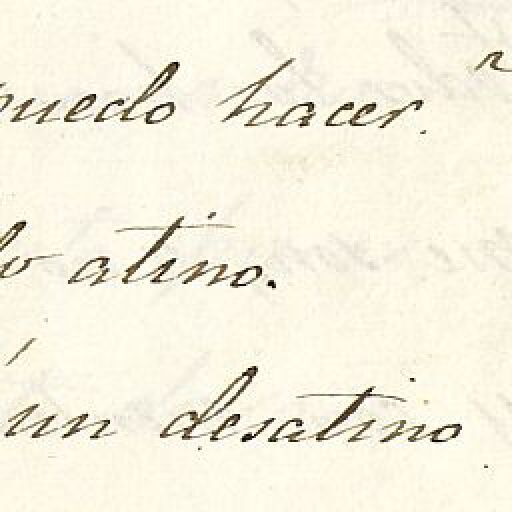 puedo hacer.
lo atino.
un desatino.